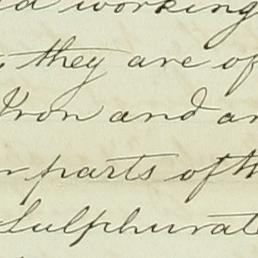 d working
they are of
Iron and a
r parts of th
Sulphurat